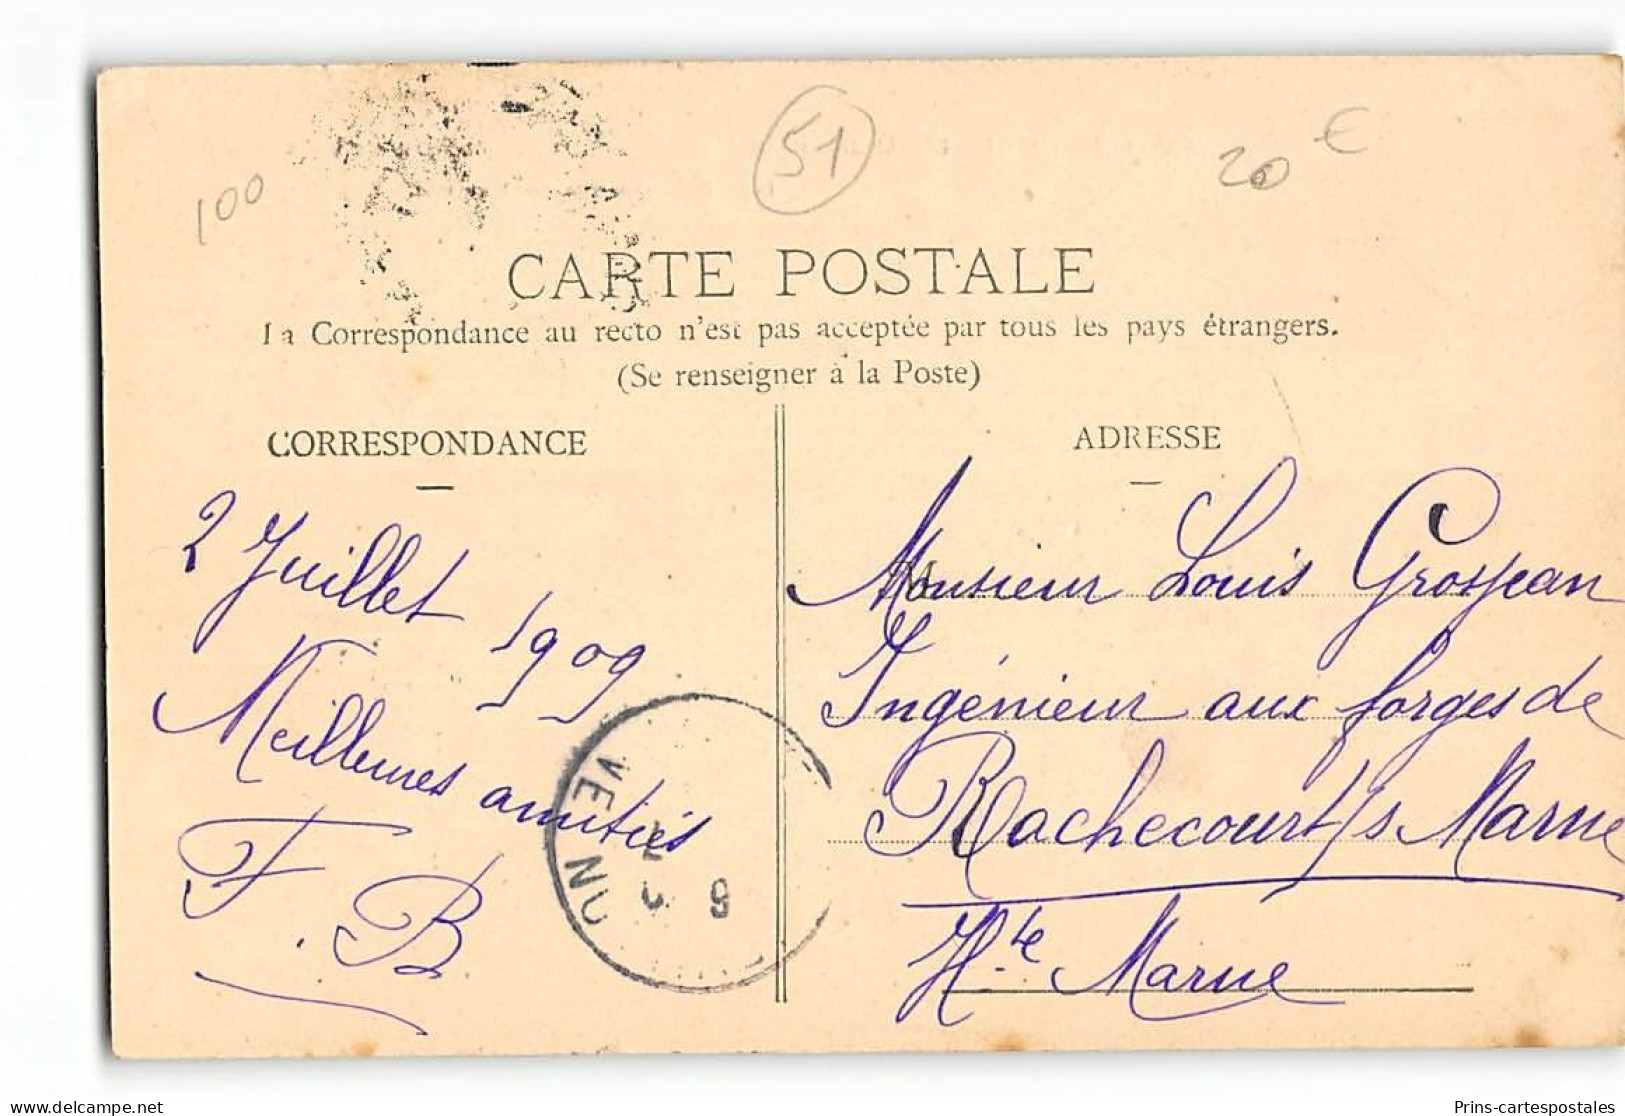 100
51
20 €
CARTE POSTALE
La Correspondance au recto n'est pas acceptée par tous les pays étrangers.
(Se renseigner à la Poste)
CORRESPONDANCE
2 Juillet 1909
Meilleures amitiés
F. B
ADRESSE
Monsieur Louis Grosjean
Ingénieur aux forges de
Rachecourt s/ Marne
Hte Marne
delcampe.net
Prins-cartespostales